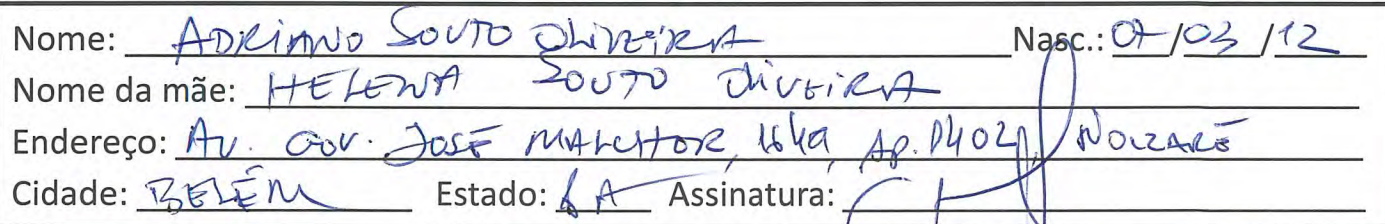 Nome: ADRIANO SOUTO OLIVEIRA Nasc.: 07/03/12
Nome da mãe: HELENA SOUTO OLIVEIRA
Endereço: Av. Gov. JOSÉ MALCHER, 1649, AP. 1402, NAZARÉ
Cidade: BELÉM Estado: PA Assinatura: